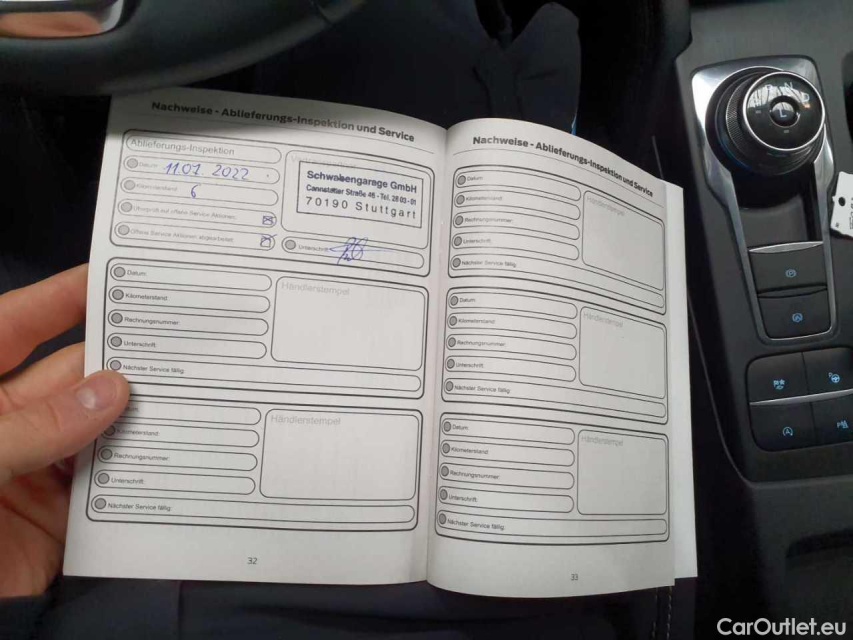 Nachweise - Ablieferungs-Inspektion und Service
Ablieferungs-Inspektion
Datum: 11.01 2022
Kilometerstand: 6
Überprüft auf offene Service Aktionen:
Offene Service Aktionen abgearbeitet:
Schwabengarage GmbH
Cannstatter Straße 46 - Tel. 28 03-01
70190 Stuttgart
Unterschrift:
Datum:
Kilometerstand:
Rechnungsnummer:
Unterschrift:
Nächster Service fällig:
Händlerstempel
Kilometerstand:
Rechnungsnummer:
Unterschrift:
Nächster Service fällig:
Händlerstempel
32
Nachweise - Ablieferungs-Inspektion und Service
Datum:
Kilometerstand:
Rechnungsnummer:
Unterschrift:
Nächster Service fällig:
Händlerstempel
Datum:
Kilometerstand:
Rechnungsnummer:
Unterschrift:
Nächster Service fällig:
Händlerstempel
Datum:
Kilometerstand:
Rechnungsnummer:
Unterschrift:
Nächster Service fällig:
Händlerstempel
33
CarOutlet.eu